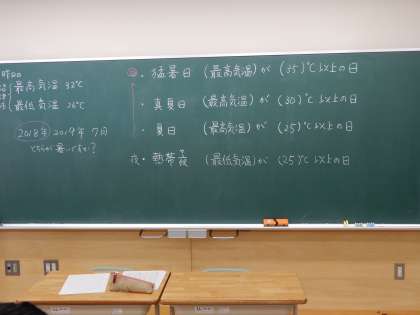 昨日
最高気温 32℃
最低気温 26℃
2018年 2019年 7月
どちらが暑いですか?
・猛暑日 (最高気温)が (35)℃以上の日
・真夏日 (最高気温)が (30)℃以上の日
・夏日 (最高気温)が (25)℃以上の日
夜・熱帯夜 (最低気温)が (25)℃以上の日